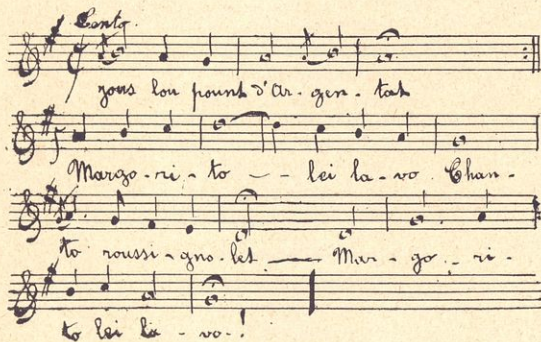 Lento.
zous lou pount d'Ar-gen-tat
Margo-ri-to - - lei la-vo. Chan-
to roussi-gno-let — Mar-go-ri-
to lei la-vo.!